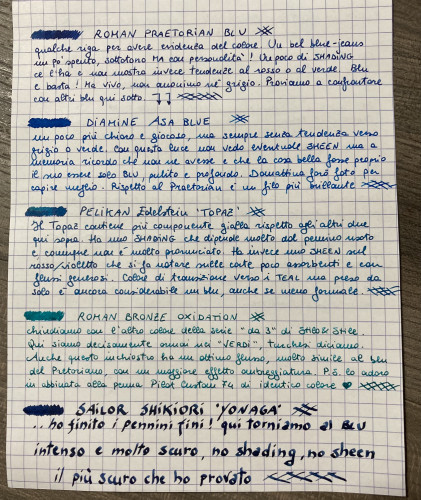 ROMAN PRAETORIAN BLU
qualche riga per avere evidenza del colore. Un bel blue-jeans
un po' spento, sottotono MA con personalità! Un poco di SHADING
ce l'ha e non mostra invece tendenze al rosso o al verde. Blu
e basta! Ma vivo, non anonimo nè grigio. Proviamo a confrontare
con altri blu qui sotto.
DIAMINE ASA BLUE
un poco più chiaro e giocoso, ma sempre senza tendenza verso
grigio o verde. Con questa luce non vedo eventuale SHEEN ma a
memoria ricordo che non ne avesse e che la cosa bella fosse proprio
il suo essere solo BLU, pulito e profondo. Domattina farò foto per
capire meglio. Rispetto al Praetorian è un filo più brillante
PELIKAN Edelstein "TOPAZ"
Il Topaz contiene più componente gialla rispetto agli altri due
qui sopra. Ha uno SHADING che dipende molto dal pennino usato
e comunque non è molto pronunciato. Ha invece uno SHEEN sul
rosso/violetto che si fa notare sulle carte poco assorbenti e con
flussi generosi. Colore di transizione verso i TEAL ma preso da
solo è ancora considerabile un blu, anche se meno formale.
ROMAN BRONZE OXIDATION
chiudiamo con l'altro colore della serie "da 3" di
Qui siamo decisamente ormai nei "VERDI", turchesi diciamo.
Anche questo inchiostro ha un ottimo flusso, molto simile al blu
del Pretoriano, con un maggiore effetto ombreggiatura. P.S. lo adoro
in abbinata alla penna Pilot Custom 74 di identico colore ♥
SAILOR SHIKIORI "YONAGA"
...ho finito i pennini fini! qui torniamo al BLU
intenso e molto scuro, no shading, no sheen
il più scuro che ho provato